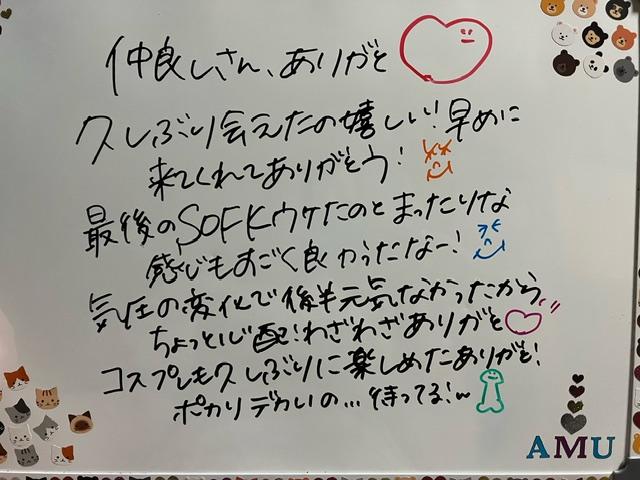 仲良しさん、ありがと
久しぶり会えたの嬉しい!早めに
来てくれてありがとう!
最後のSOFKウケたのとまったりな
感じもすごく良かったなー!
気圧の変化で後半元気なかったから
ちょっと心配!わざわざありがと
コスプレも久しぶりに楽しめたありがと!
ポカリデカいの...待ってる!~
AMU